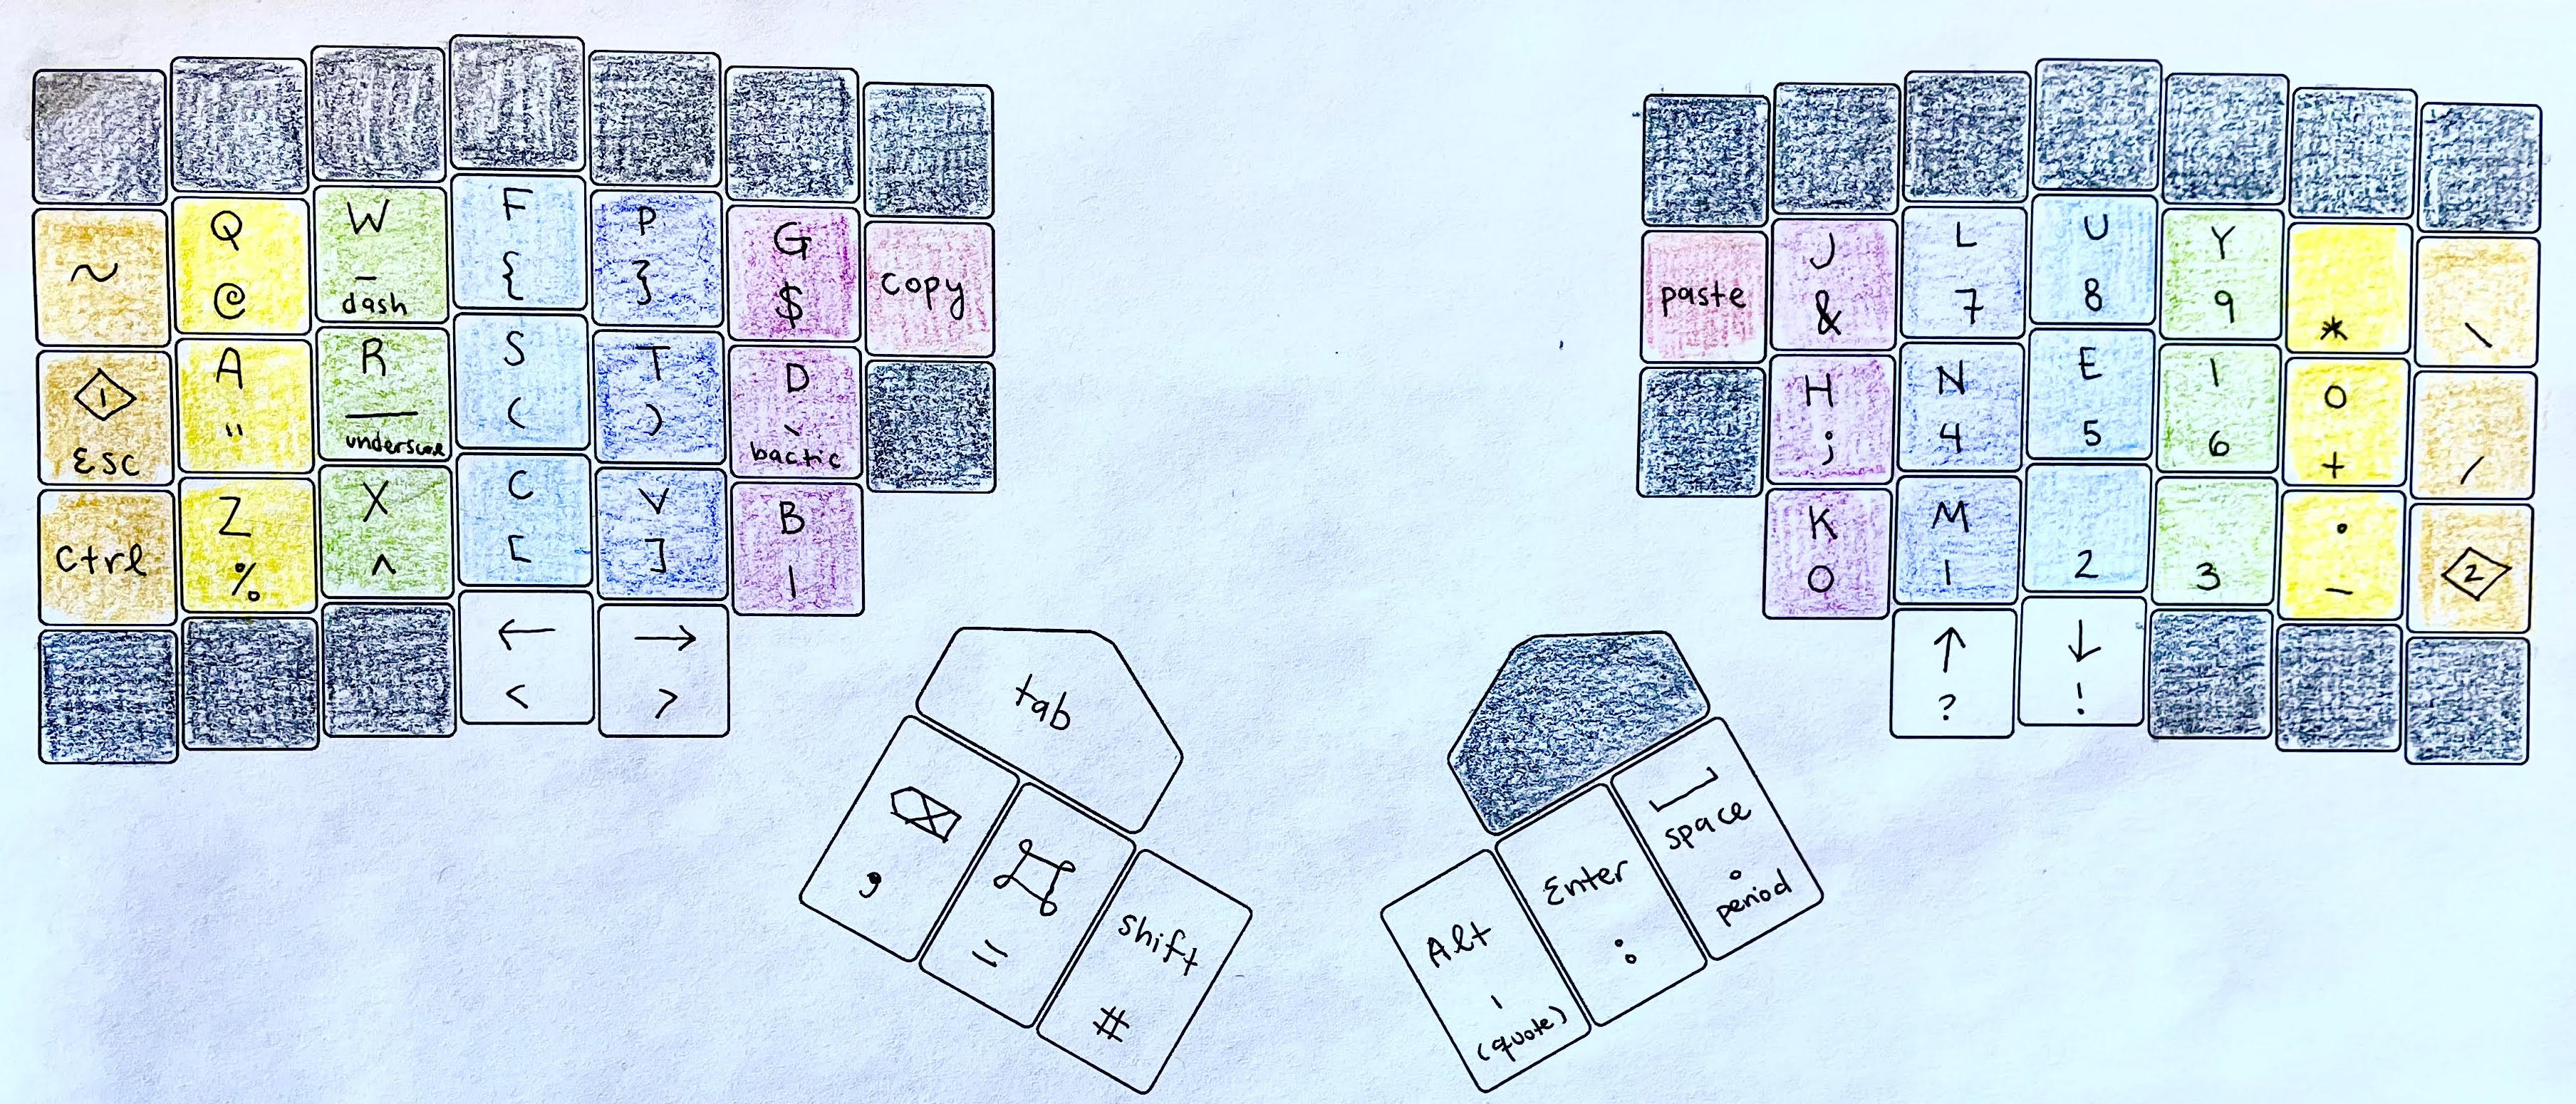 ~
Q
@
W
-
dash
F
{
P
}
G
$
copy
1
Esc
A
"
R
_
underscore
S
(
T
)
D
`
bactic
Ctrl
Z
%
X
^
C
[
V
]
B
|
←
<
→
>
tab
⌫
,
⌘
=
shift
#
paste
J
&
L
7
U
8
Y
9
*
\
H
;
N
4
E
5
I
6
O
+
/
K
0
M
1
2
3
.
-
2
↑
?
↓
!
space
.
period
Enter
:
Alt
'
(quote)